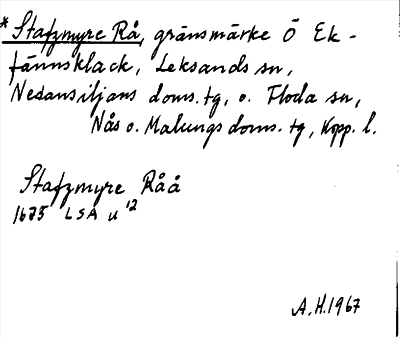 * Stafzmyre Rå, gränsmärke Ö Ek-
fännsklack, Leksands sn,
Nedansiljans doms.tg, o. Floda sn,
Nås o. Malungs doms.tg, Kopp. l.
Stafzmyre Råå
1675 LSA u 12
A.H. 1967